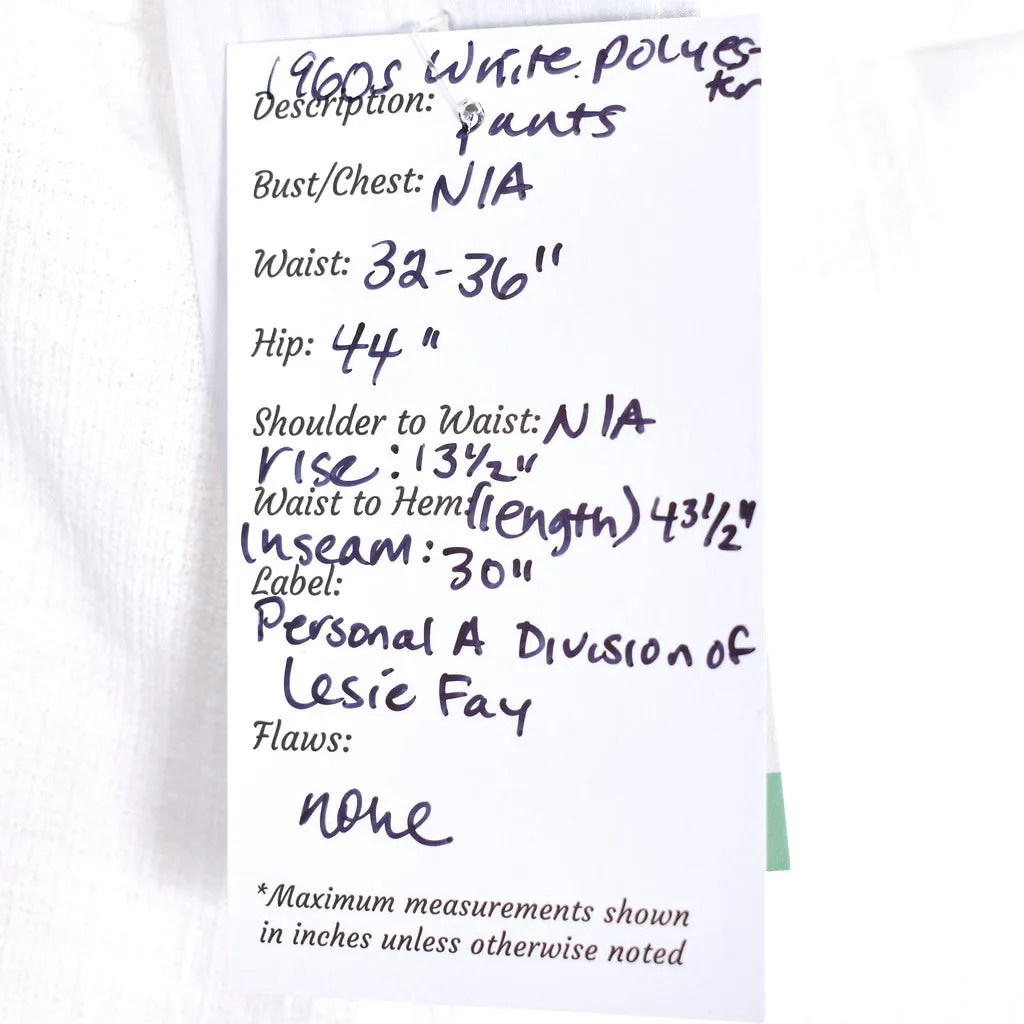 1960s White Polyes-
ter
Description: pants
Bust/Chest: N/A
Waist: 32-36"
Hip: 44"
Shoulder to Waist: N/A
rise: 13 1/2"
Waist to Hem: (length) 43 1/2"
Inseam: 30"
Label:
Personal A Division of
Lesie Fay
Flaws:
none
*Maximum measurements shown
in inches unless otherwise noted